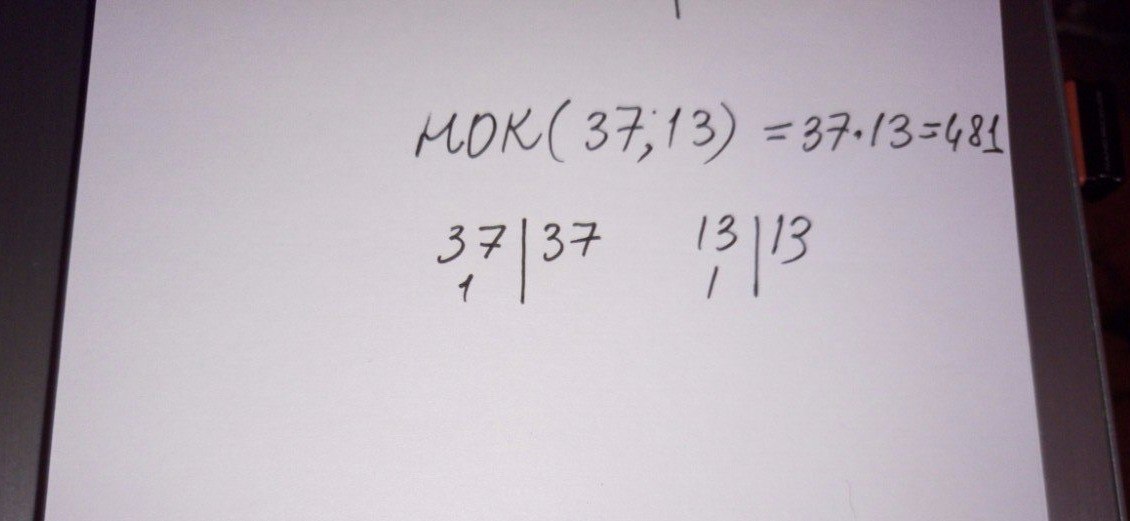 НОК(37;13) = 37·13=481
37|37 13|13
1 1